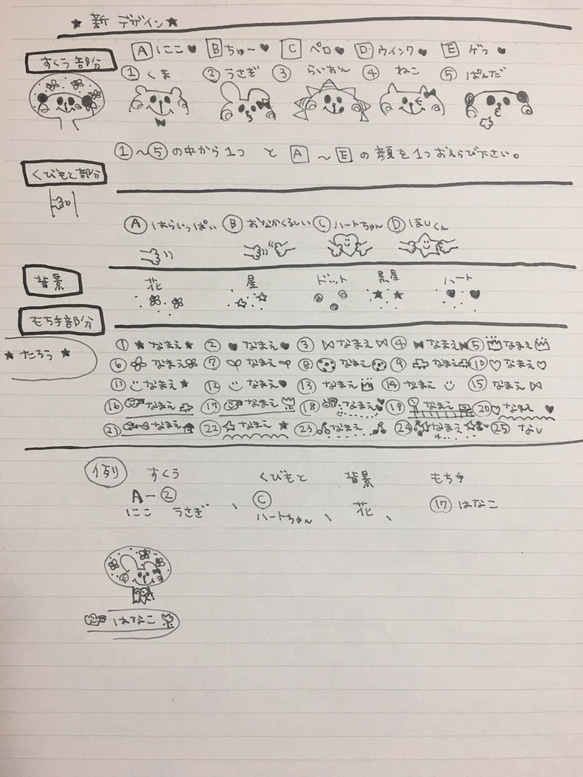 ★新デザイン★
すくう部分
A にこ♥ B ちゅー♥ C ペロ♥ D ウインク♥ E ゲっ♥
① くま ② うさぎ ③ らいおん ④ ねこ ⑤ ぱんだ
①～⑤の中から1つと A～E の顔を1つおえらび下さい。
くびもと部分
Ⓐ はらいっぱい Ⓑ おなかくるしい Ⓒ ハートちゃん Ⓓ ほしくん
背景
花 星 ドット 黒星 ハート
もち手部分
★たろう★
① ★なまえ★ ② ♥なまえ♥ ③ なまえ ④ なまえ ⑤ なまえ
⑥ なまえ ⑦ なまえ ⑧ なまえ ⑨ なまえ ⑩ ♡なまえ♡
⑪ なまえ★ ⑫ なまえ♥ ⑬ なまえ ⑭ なまえ ⑮ なまえ
⑯ なまえ ⑰ なまえ ⑱ なまえ ⑲ なまえ ⑳ ♡なまえ♥
㉑ なまえ ㉒ ☆なまえ★ ㉓ なまえ ㉔ なまえ ㉕ なし
例 すくう くびもと 背景 もち手
A-② 、 Ⓒ 花、 ⑰ はなこ
にこ うさぎ ハートちゃん、
はなこ